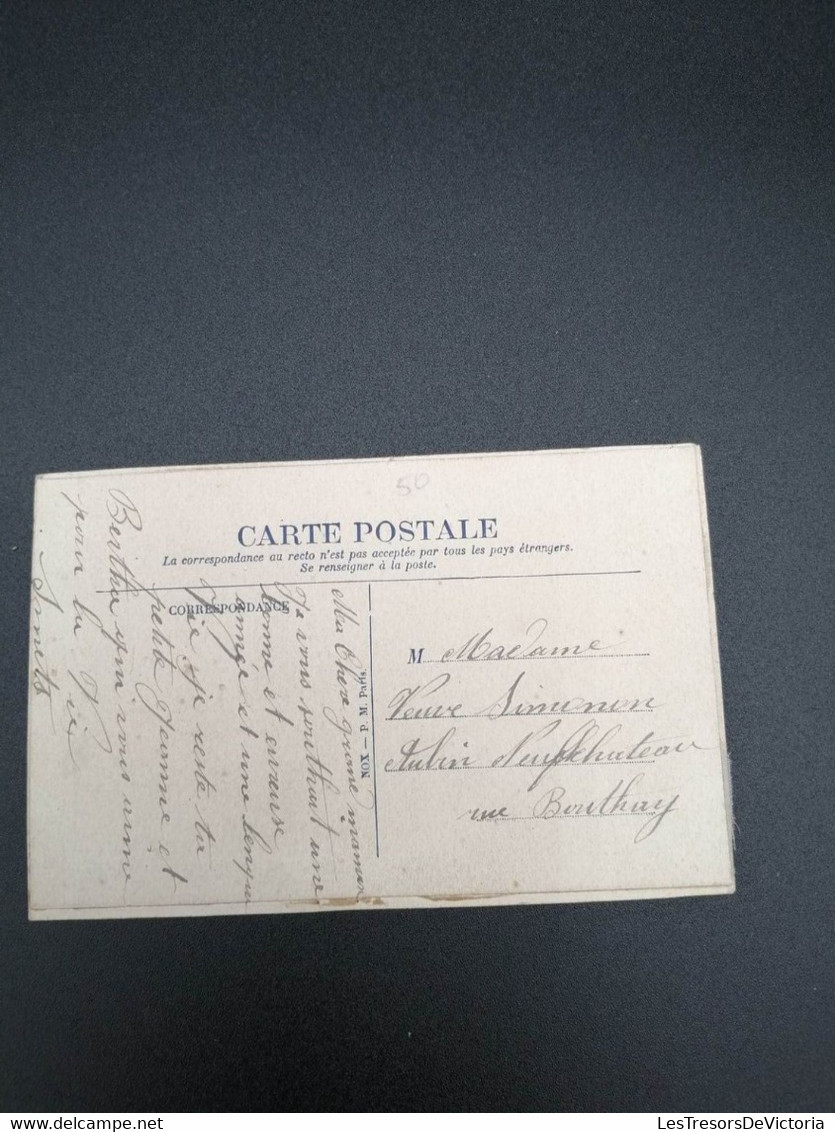 50
CARTE POSTALE
La correspondance au recto n'est pas acceptée par tous les pays étrangers.
Se renseigner à la poste.
CORRESPONDANCE
Ma Chere grand maman
Je vous southait une
bonne et eureuse
année et une longue
Vie je reste ta
petite Jeanne et
Berthe qui vous aime
pour la Vie
Smets
NOX — P. M. Paris.
M Madame
Veuve Simonon
Aubin Neufchateau
rue Bouthay
LesTresorsDeVictoria
delcampe.net